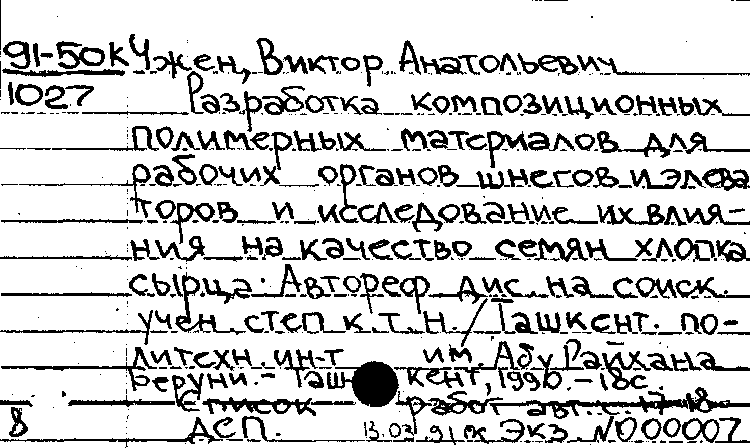 91-50к Чжен, Виктор Анатольевич
1027 Разработка композиционных
полимерных материалов для
рабочих органов шнегов и элева
торов и исследование их влия-
ния на качество семян хлопка
сырца. Автореф дис на соиск.
учен. степ к.т.н. / Ташкент. по-
литехн. ин-т им. Абу Райхана
Беруни. - Ташкент, 1990. - 18с.
Список работ авт. с. 17-18
8 ДСП. 13.03.91 Экз. N000007